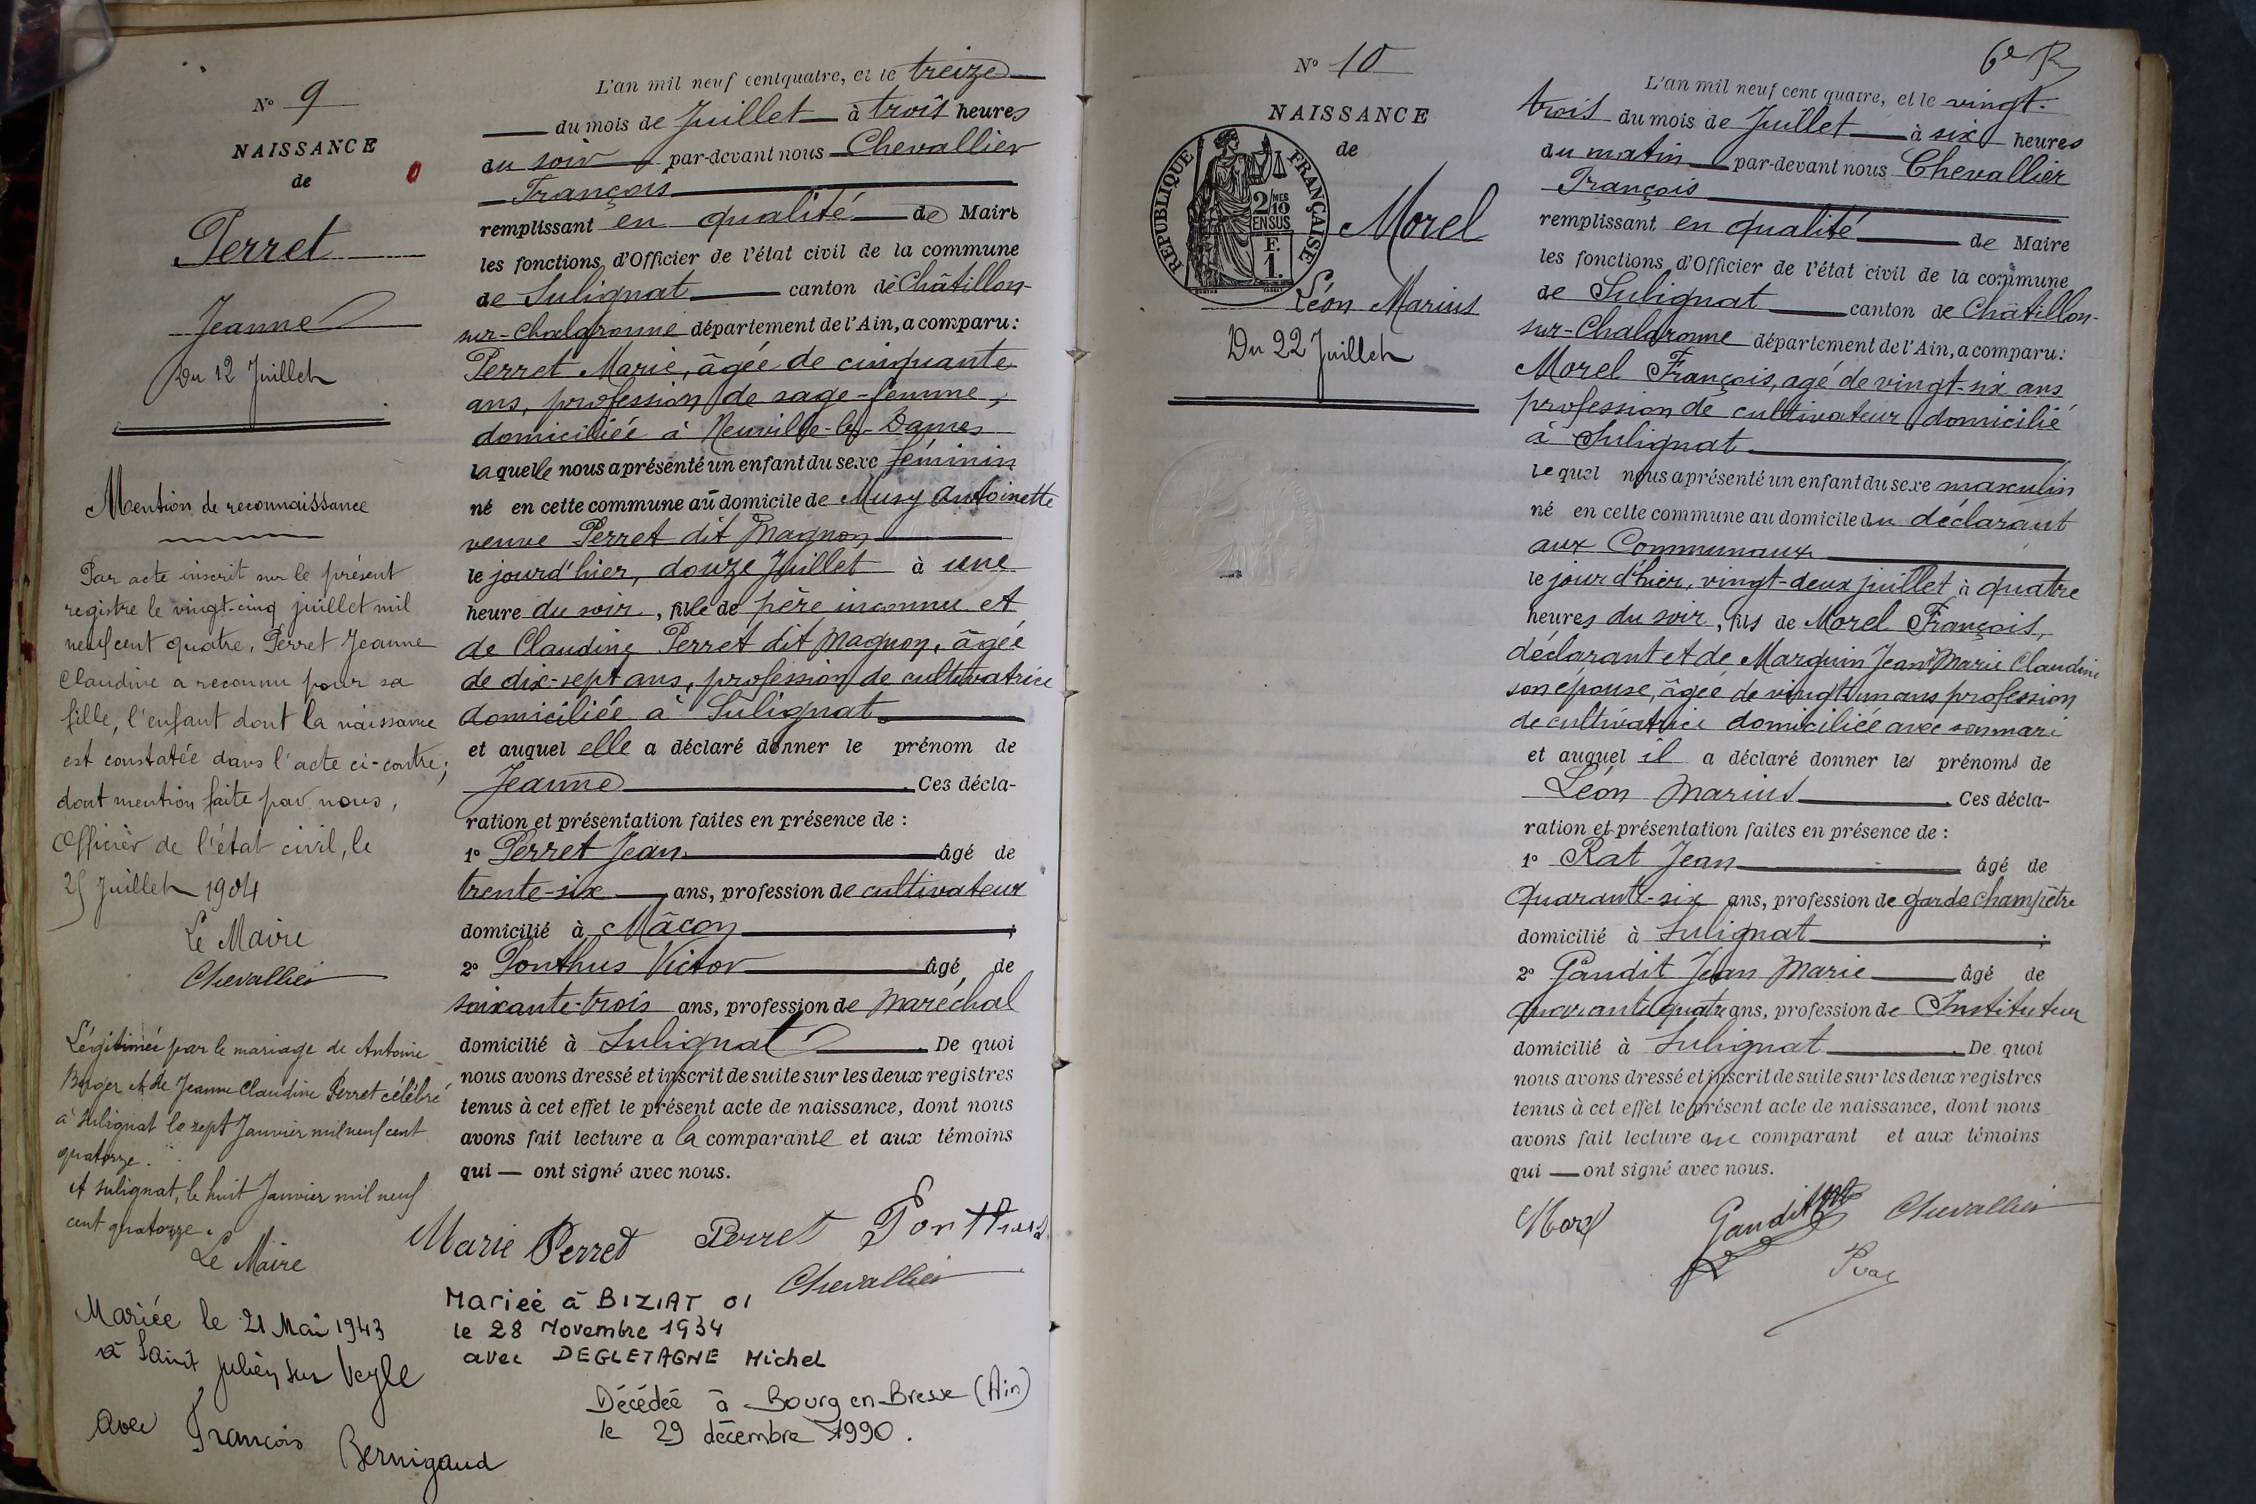 N° 9
NAISSANCE
de
Perret
Jeanne
Du 12 Juillet
Mention de reconnaissance
Par acte inscrit sur le présent
registre le vingt-cinq juillet mil
neuf cent quatre, Perret Jeanne
Claudine a reconnu pour sa
fille, l'enfant dont la naissance
est constatée dans l'acte ci-contre;
dont mention faite par nous,
Officier de l'état civil, le
25 Juillet 1904
Le Maire
Chevallier
Légitimée par le mariage de Antoine
Buger et de Jeanne Claudine Perret célébré
à Sulignat le sept Janvier mil neuf cent
quatorze.
A Sulignat, le huit Janvier mil neuf
cent quatorze.
Le Maire
Mariée le 21 Mai 1943
à Saint Julien sur Veyle
avec François Bernigaud
L'an mil neuf cent quatre, et le treize
du mois de Juillet à trois heures
du soir par-devant nous Chevallier
François
remplissant en qualité de Maire
les fonctions d'Officier de l'état civil de la commune
de Sulignat canton de Châtillon-
sur-Chalaronne département de l'Ain, a comparu:
Perret Marie, âgée de cinquante
ans, profession de sage-femme,
domiciliée à Neuville-les-Dames
laquelle nous a présenté un enfant du sexe féminin
né en cette commune au domicile de Musy Antoinette
veuve Perret dit Magnon
le jour d'hier, douze Juillet à une
heure du soir, fille de père inconnu et
de Claudine Perret dit Magnon, âgée
de dix-sept ans, profession de cultivatrice
domiciliée à Sulignat
et auquel elle a déclaré donner le prénom de
Jeanne. Ces décla-
ration et présentation faites en présence de :
1° Perret Jean âgé de
trente-six ans, profession de cultivateur
domicilié à Mâcon ;
2° Ponthus Victor âgé de
soixante-trois ans, profession de Maréchal
domicilié à Sulignat. De quoi
nous avons dressé et inscrit de suite sur les deux registres
tenus à cet effet le présent acte de naissance, dont nous
avons fait lecture a la comparante et aux témoins
qui — ont signé avec nous.
Marie Perret Perret Ponthus
Chevallier
Mariée à BIZIAT 01
le 28 Novembre 1934
avec DEGLETAGNE Michel
Décédée à Bourg en-Bresse (Ain)
le 29 décembre 1990.
6e R
N° 10
NAISSANCE
de
REPUBLIQUE FRANÇAISE
2/10 MES
EN SUS
F.
1.
Morel
Léon Marius
Du 22 Juillet
L'an mil neuf cent quatre, et le vingt-
trois du mois de Juillet à six heures
du matin par-devant nous Chevallier
François
remplissant en qualité de Maire
les fonctions d'Officier de l'état civil de la commune
de Sulignat canton de Châtillon-
sur-Chalaronne département de l'Ain, a comparu:
Morel François, agé de vingt-six ans
profession de cultivateur domicilié
à Sulignat
lequel nous a présenté un enfant du sexe masculin
né en cette commune au domicile du déclarant
aux Communaux
le jour d'hier, vingt-deux juillet à quatre
heures du soir, fils de Morel François,
déclarant et de Marguin Jeanne Marie Claudine
son épouse, âgée de vingt-un ans profession
de cultivatrice domiciliée avec son mari
et auquel il a déclaré donner les prénoms de
Léon Marius. Ces décla-
ration et présentation faites en présence de :
1° Rat Jean âgé de
quarante-six ans, profession de garde champêtre
domicilié à Sulignat ;
2° Gandit Jean Marie âgé de
quarante quatre ans, profession de Instituteur
domicilié à Sulignat. De quoi
nous avons dressé et inscrit de suite sur les deux registres
tenus à cet effet le présent acte de naissance, dont nous
avons fait lecture au comparant et aux témoins
qui — ont signé avec nous.
Morel Gandit Chevallier